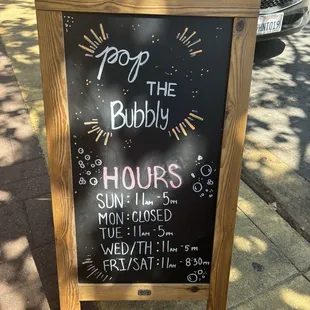 pop
THE
Bubbly
HOURS
SUN: 11AM-5PM
MON: CLOSED
TUE: 11AM-5PM
WED/TH: 11AM-5PM
FRI/SAT: 11AM-8:30PM